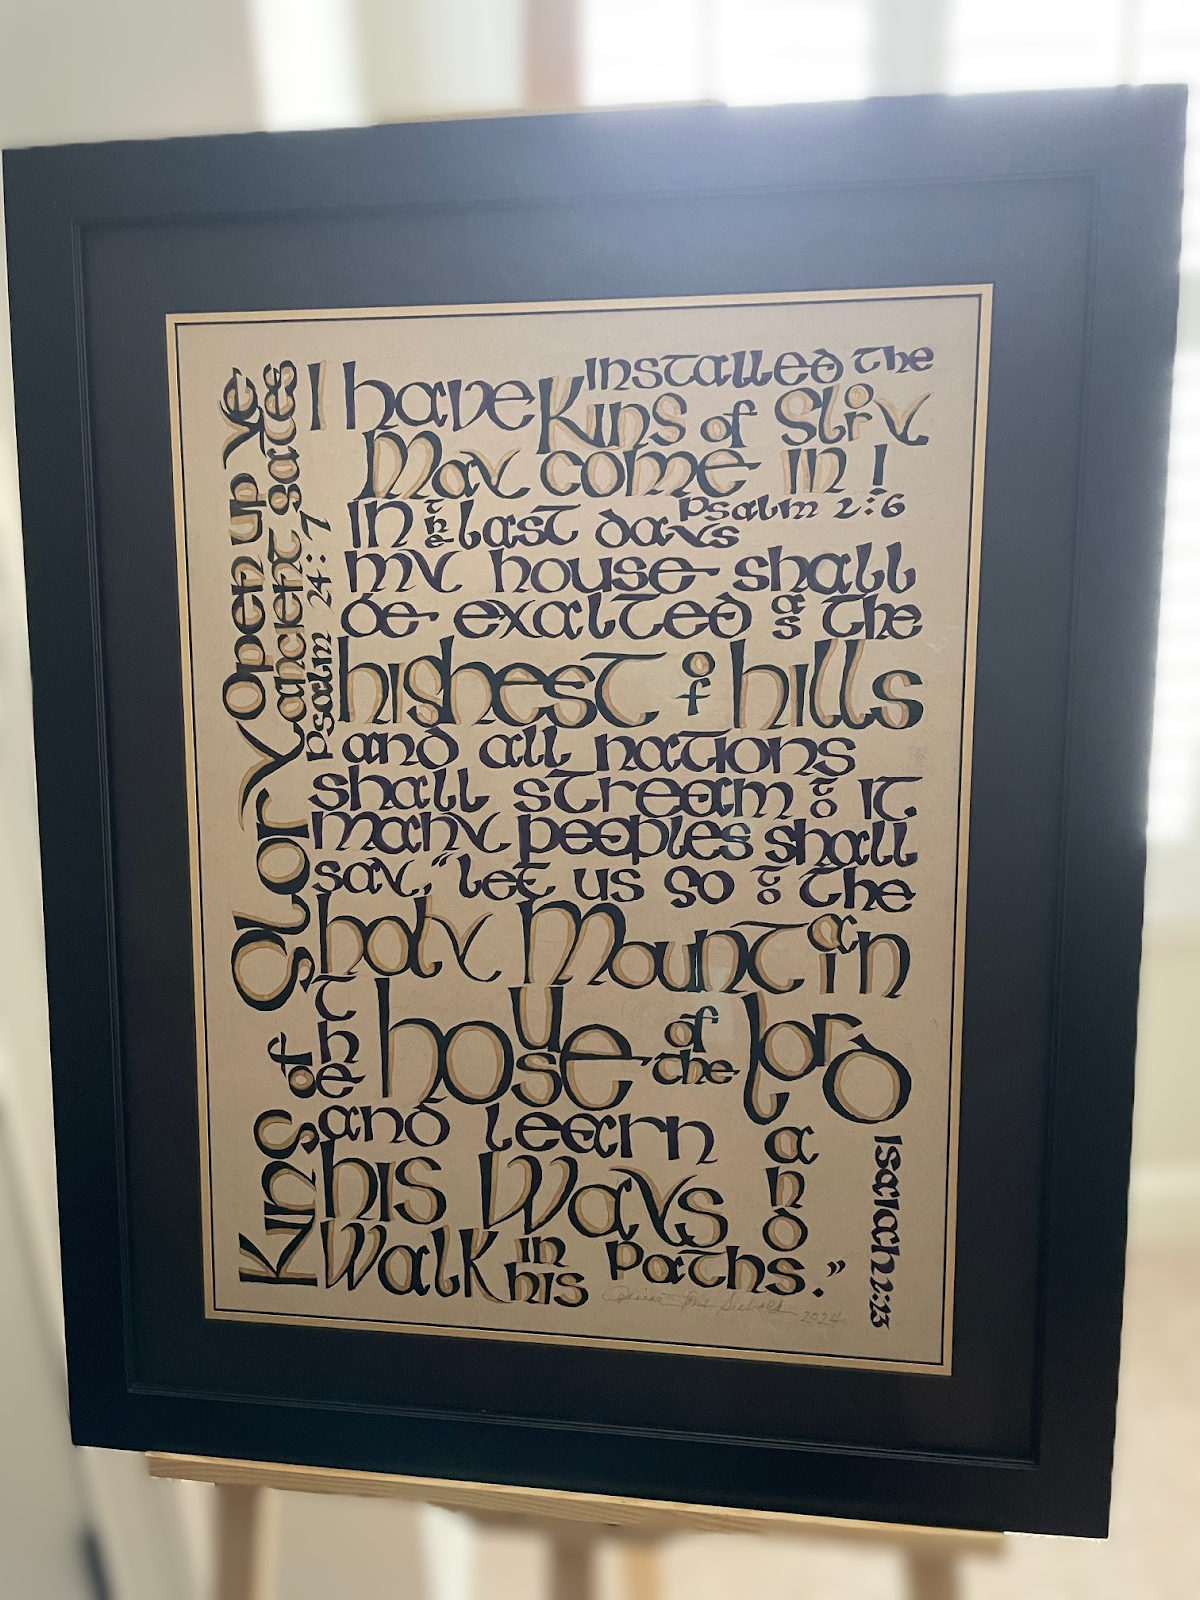 Open up Ye
King of Glory ancient gates
Psalm 24::7
I have installed the
King of Glory
May come in!
Psalm 2:6
In the last days
my house shall
be exalted as the
highest of hills
and all nations
shall stream to it.
Many peoples shall
say, “let us go to the
holy Mountain
the house of the lord
and learn
his Ways and
Walk in his paths.”
Isaiah 2:23
2024